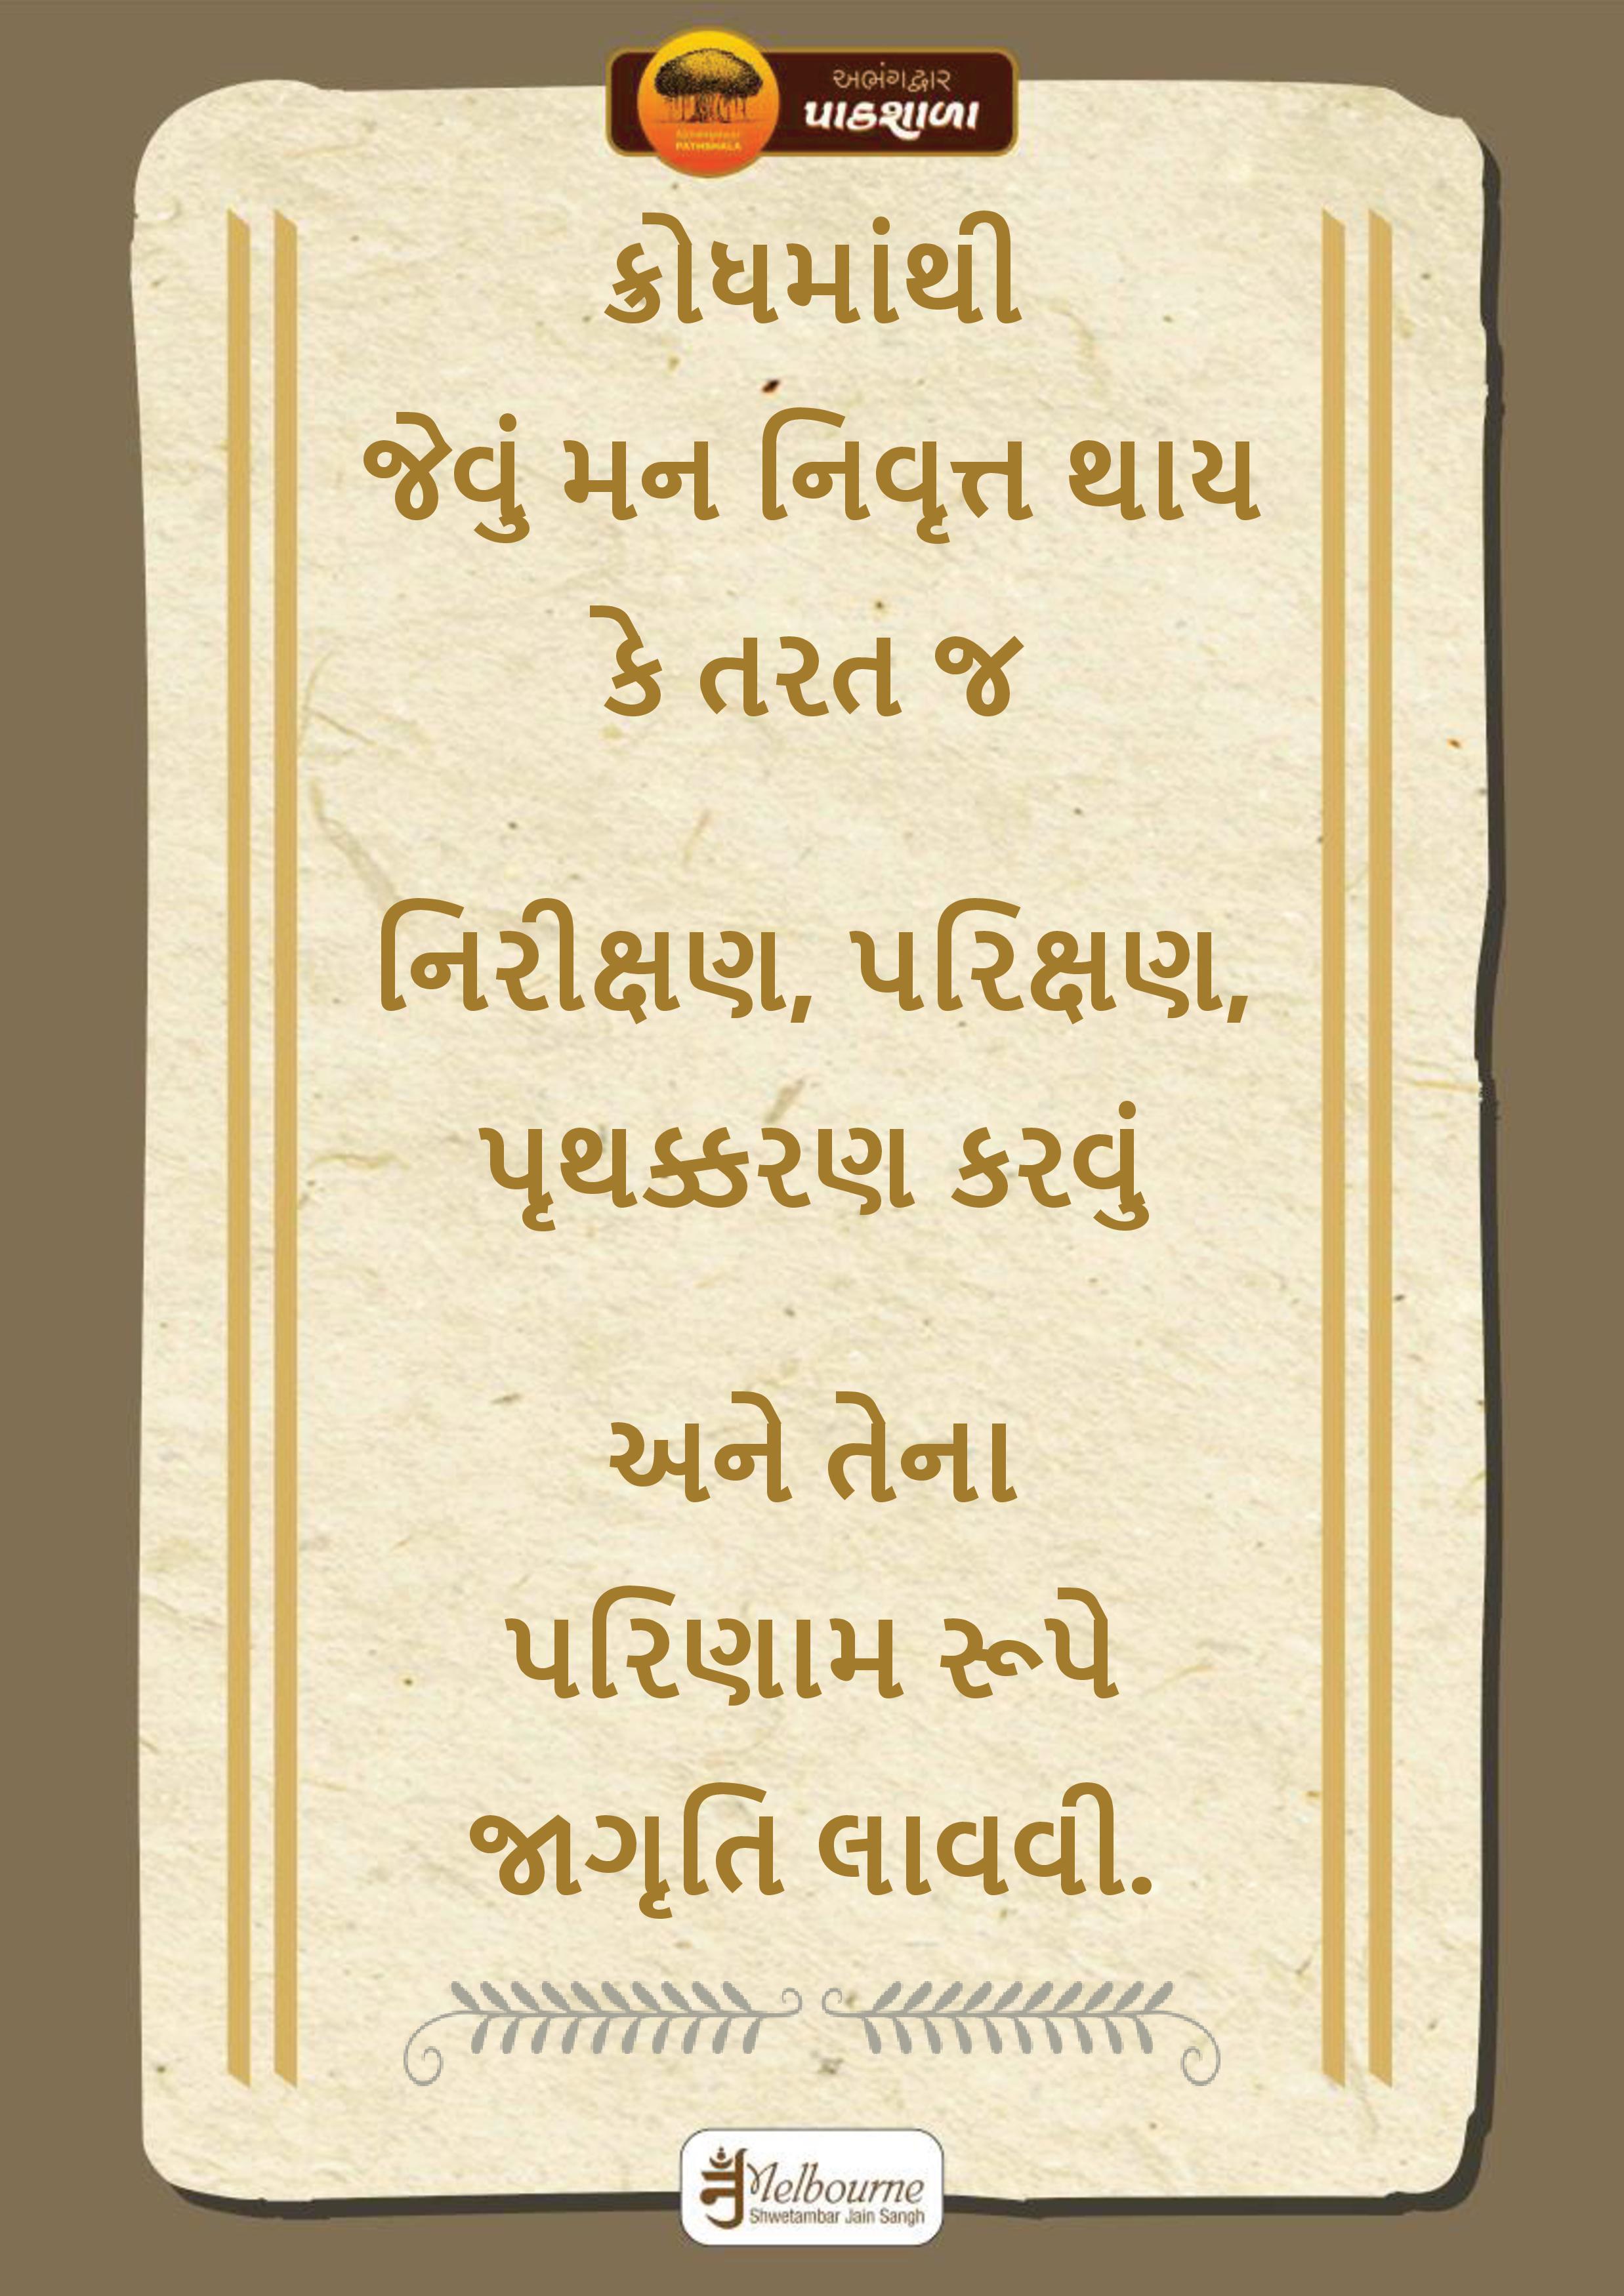 અભંગદ્વાર
પાઠશાળા
PATHSHALA
ક્રોધમાંથી
જેવું મન નિવૃત્ત થાય
કે તરત જ
નિરીક્ષણ, પરિક્ષણ,
પૃથક્કરણ કરવું
અને તેના
પરિણામ રૂપે
જાગૃતિ લાવવી.
Melbourne
Shwetambar Jain Sangh